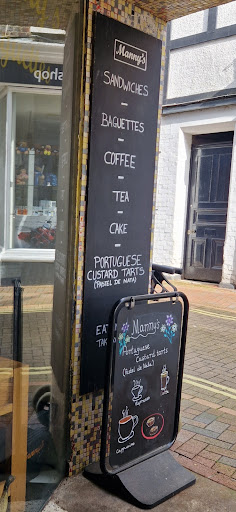 Manny's
SANDWICHES
BAGUETTES
COFFEE
TEA
CAKE
PORTUGUESE
CUSTARD TARTS
(PASTEL DE NATA)
EAT
TAK
shop
Manny's
Portuguese
Custard tarts
(Pastel de nata)
Espresso